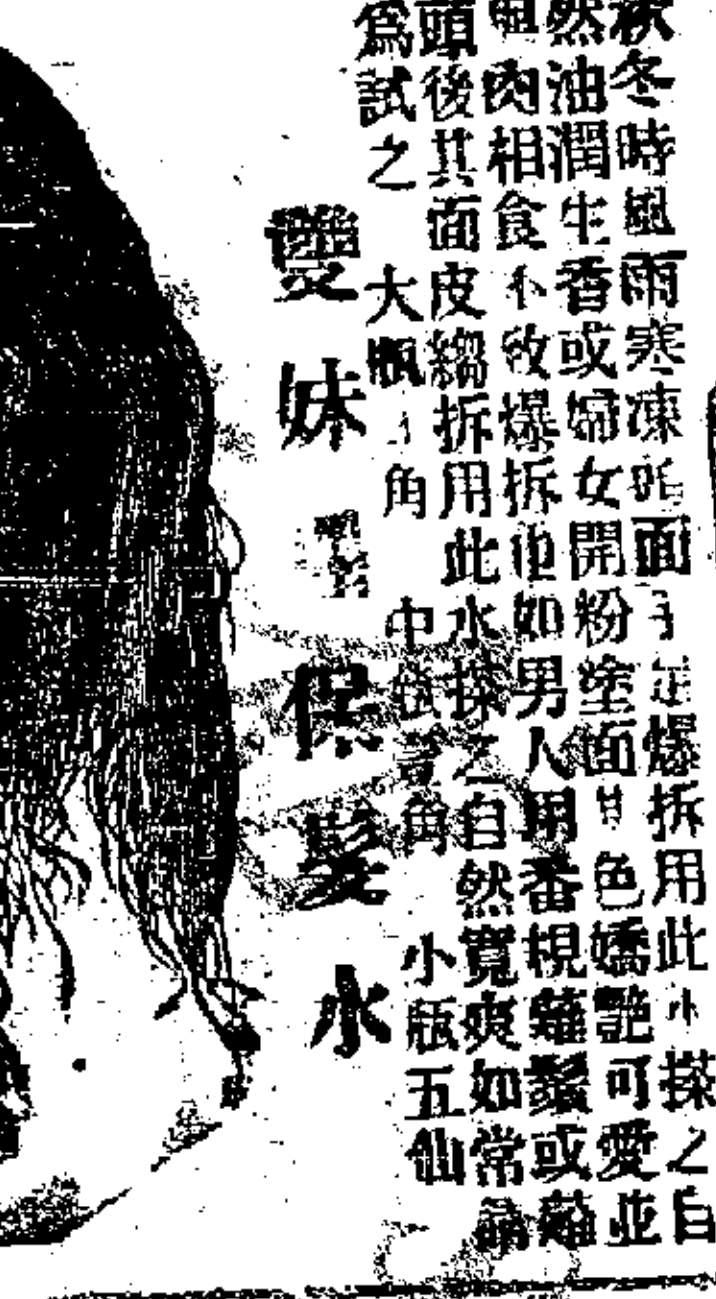 秋冬時風雨寒凍面手足爆拆用此水搽之自
然油潤生香或婦女開粉塗面甘色嬌艷可愛並
肉相食不致爆拆也如男人用番梘薙鬚或薙
頭後其面皮縐拆用此水搽之自然寬爽如常請
為試之 大瓶角 中瓶壹角 小瓶五仙
雙妹 保髮水